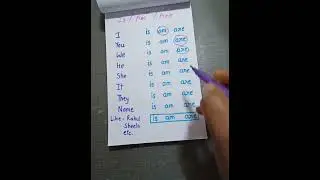 I is am are
You is am are
We is am are
He is am are
She is am are
It is am are
They is am are
Name is am are
Like - Rahul is am are
Sheela
etc.